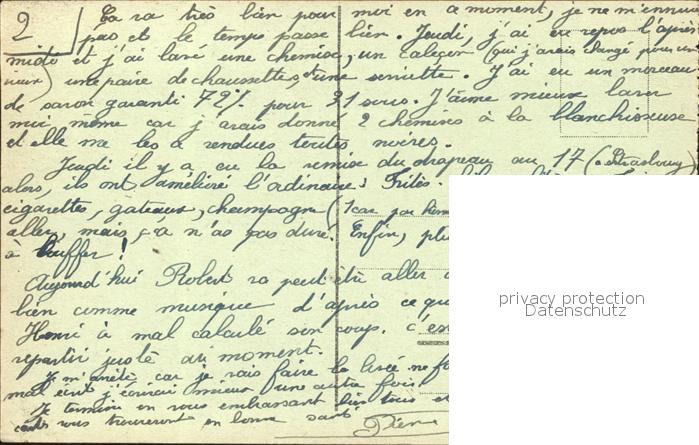 2
Ça va très bien pour moi en ce moment, je ne m'ennuie
pas et le temps passe bien. Jeudi, j'ai eu repos l'après
midi et j'ai lavé une chemise, un caleçon (que j'avais changé pour un
) une paire de chaussettes, et une serviette. J'ai eu un morceau
de savon garanti 72% pour 31 sous. J'aime mieux laver
moi même car j'avais donné 2 chemises à la blanchisseuse
et elle me les a rendues toutes noires.
Jeudi il y a eu la remise du drapeau au 17 (a Strasbourg)
alors, ils ont amélioré l'ordinaire: Frites.
cigarettes, gateaux, champagne (1 car par
aller, mais ça n'a pas duré. Enfin, plu
à bouffer!
Aujourd'hui Robert va peut être aller
bien comme musique d'après ce qu
Henri à mal calculé son coup. C'es
repartir juste au moment.
Je m'arrête car je vais faire la
mal écrit j'écrirai mieux une autre fois.
Je termine en vous embrassant bien tous et
cartes vous trouveront en bonne santé
privacy protection
Datenschutz